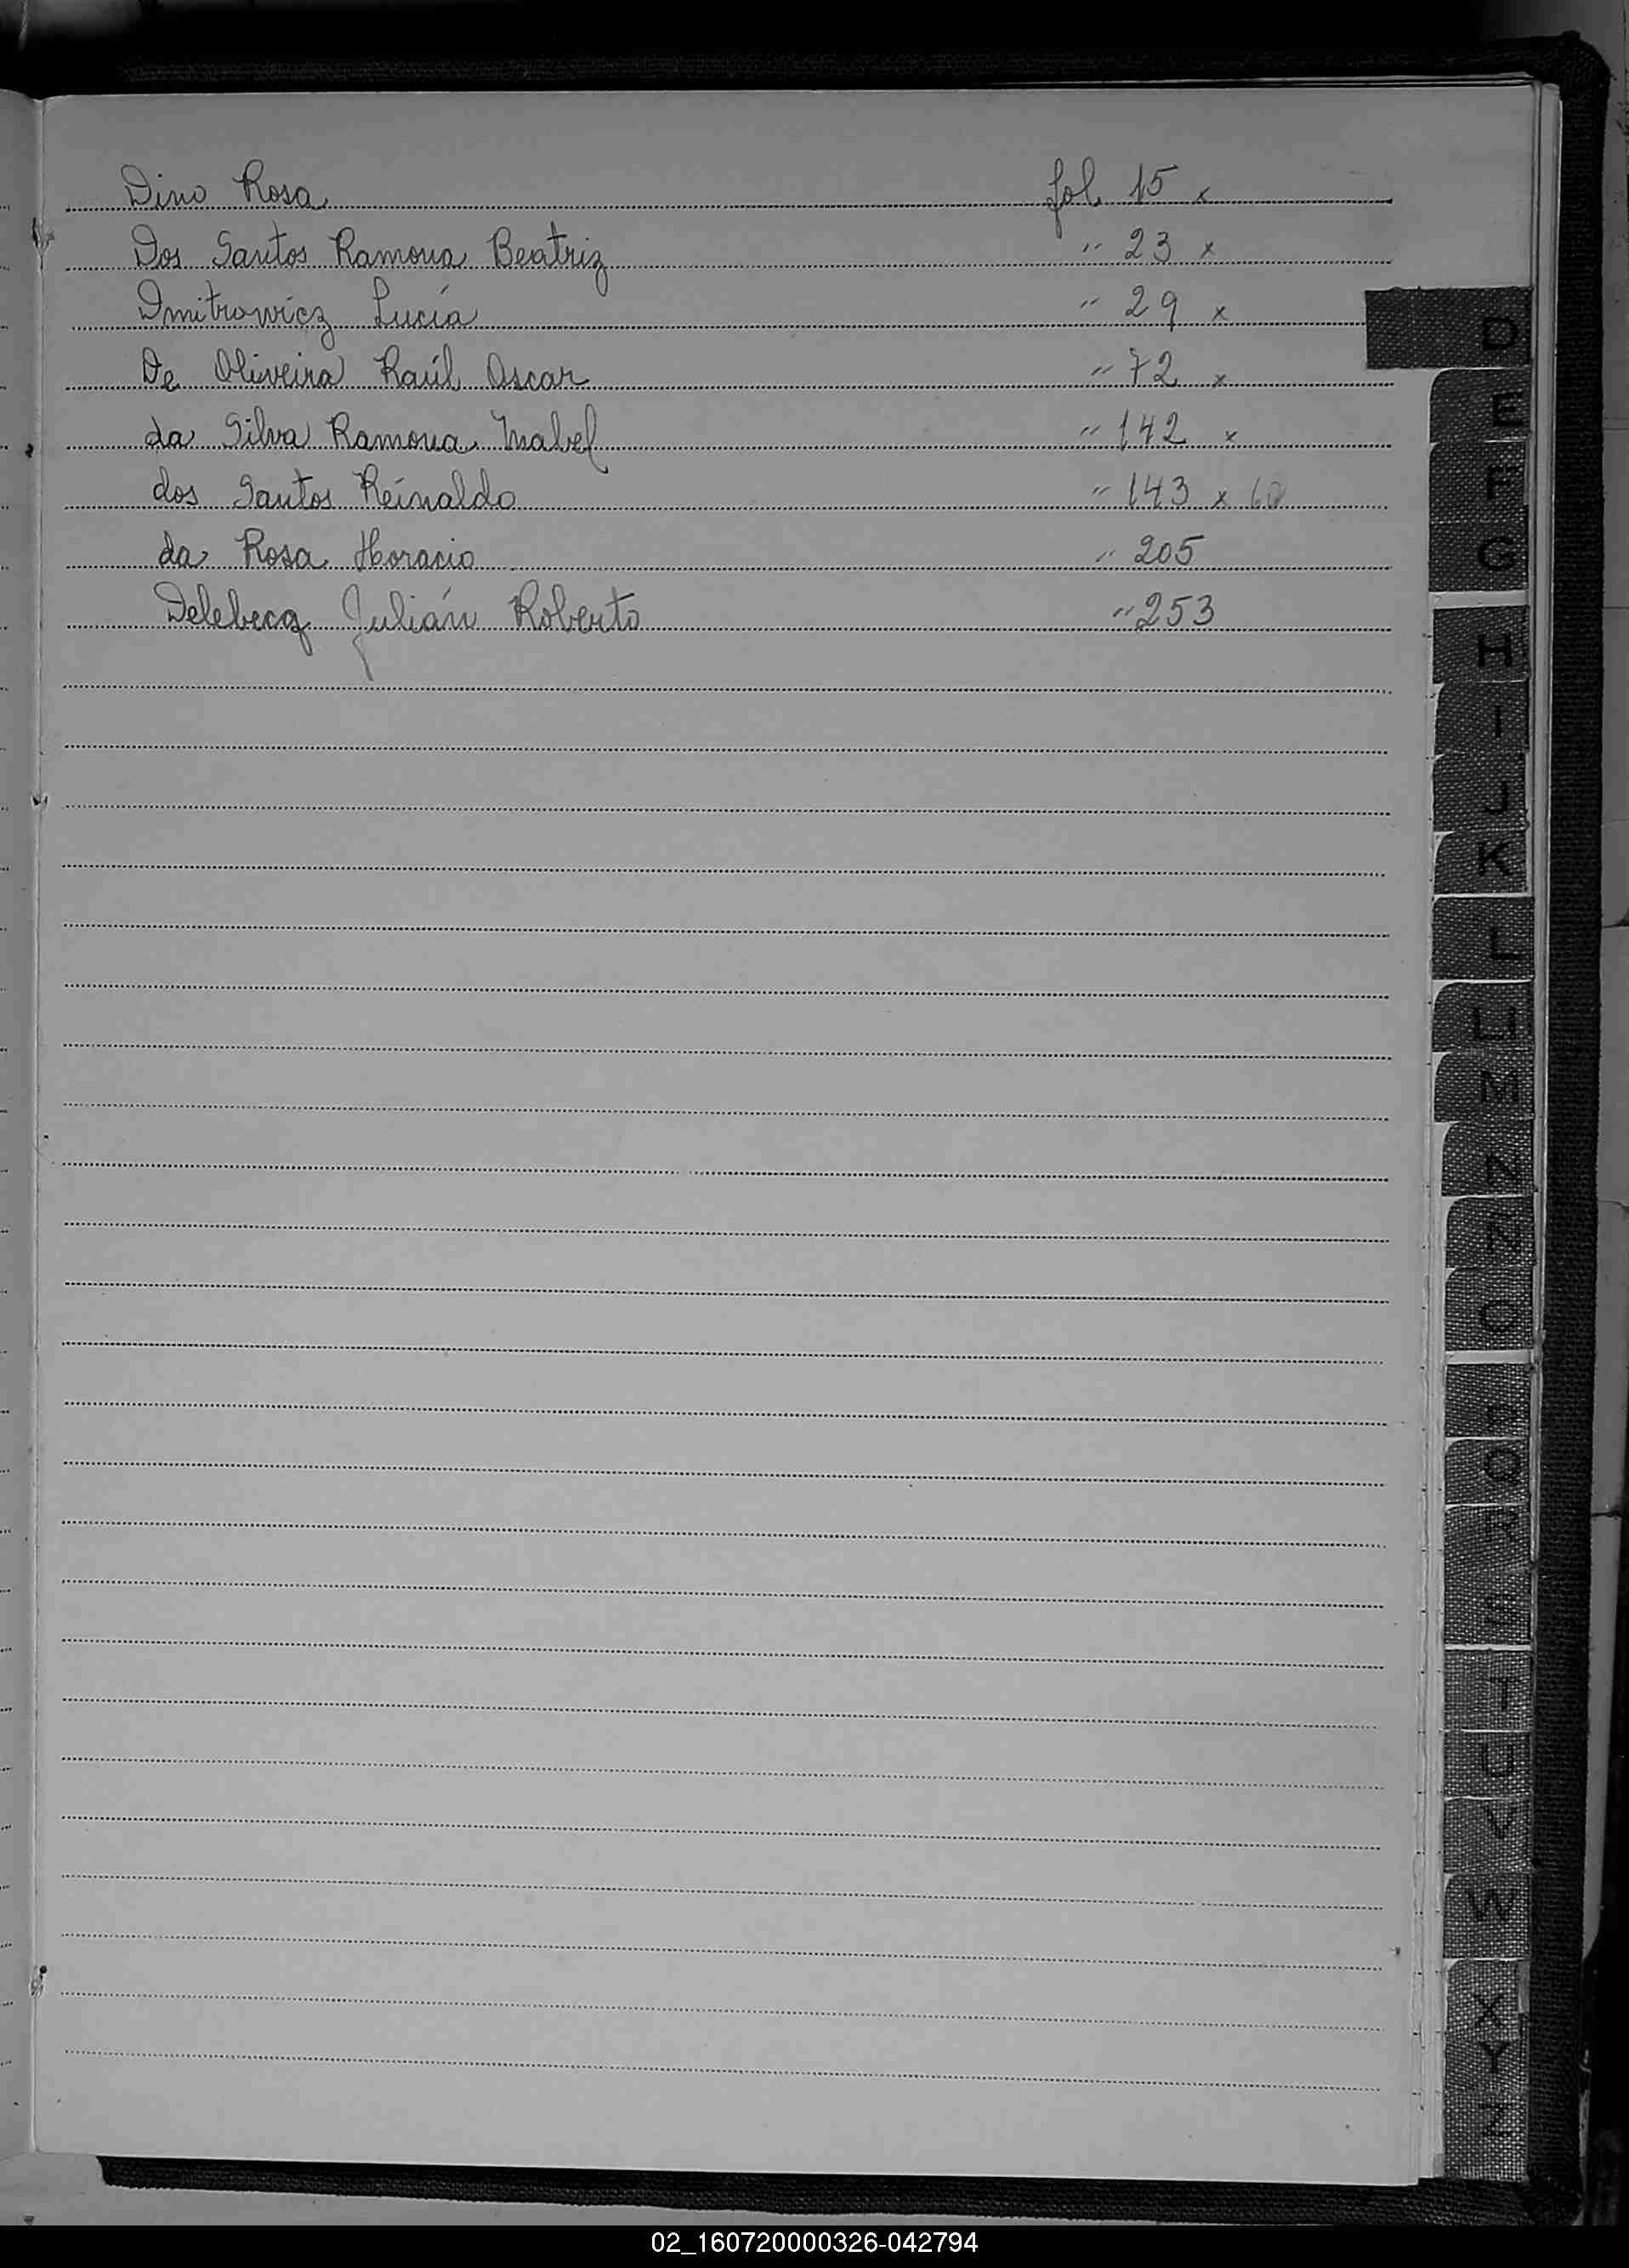 Dino Rosa fol. 15 x
Dos Santos Ramona Beatriz " 23 x
Dmitrowicz Lucía " 29 x
De Oliveira Raúl Oscar " 72 x
da Silva Ramona Mabel " 142 x
dos Santos Reinaldo " 143 x 60
da Rosa Horacio " 205
Delebecq Julián Roberto " 253
D
E
F
G
H
I
J
K
L
LL
M
N
Ñ
O
P
Q
R
S
T
U
V
W
X
Y
Z
02_160720000326-042794